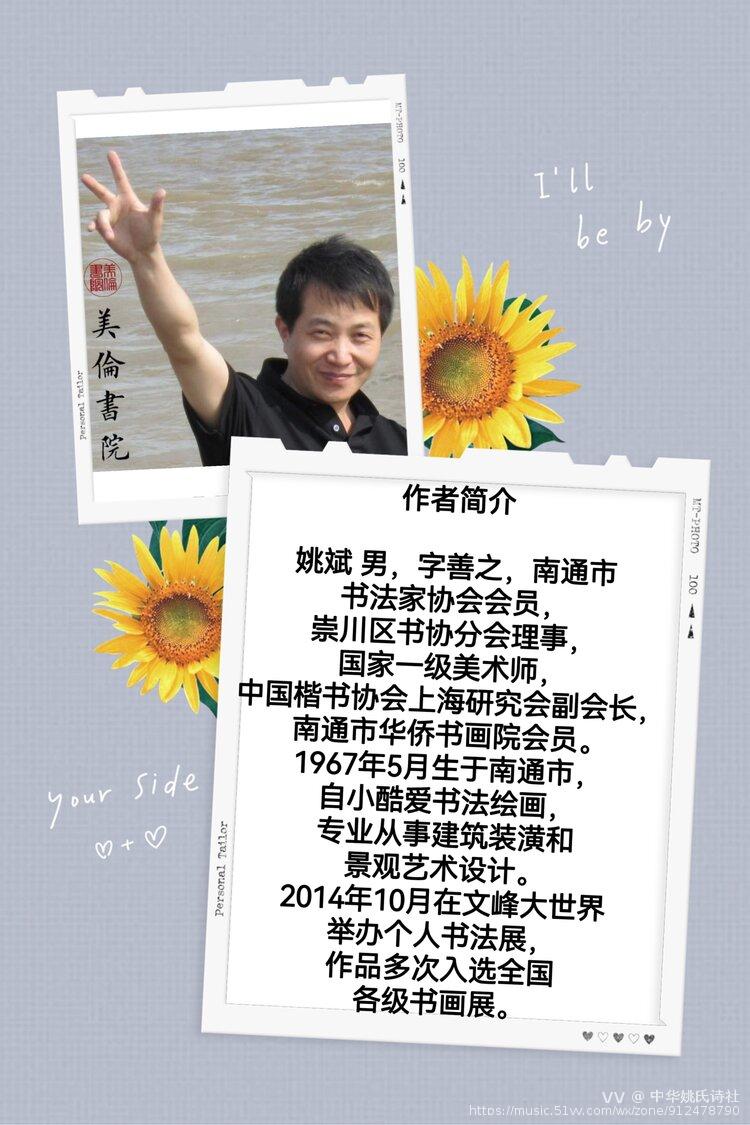 MT-PHOTO 100
I'll
be by
美倫書院
美倫書院
Personal Tailor
作者简介
姚斌 男，字善之，南通市
书法家协会会员，
崇川区书协分会理事，
国家一级美术师，
中国楷书协会上海研究会副会长，
南通市华侨书画院会员。
1967年5月生于南通市，
自小酷爱书法绘画，
专业从事建筑装潢和
景观艺术设计。
2014年10月在文峰大世界
举办个人书法展，
作品多次入选全国
各级书画展。
MT-PHOTO 100
your side
Personal Tailor
VV @ 中华姚氏诗社
https://music.51vv.com/wx/zone/912478790